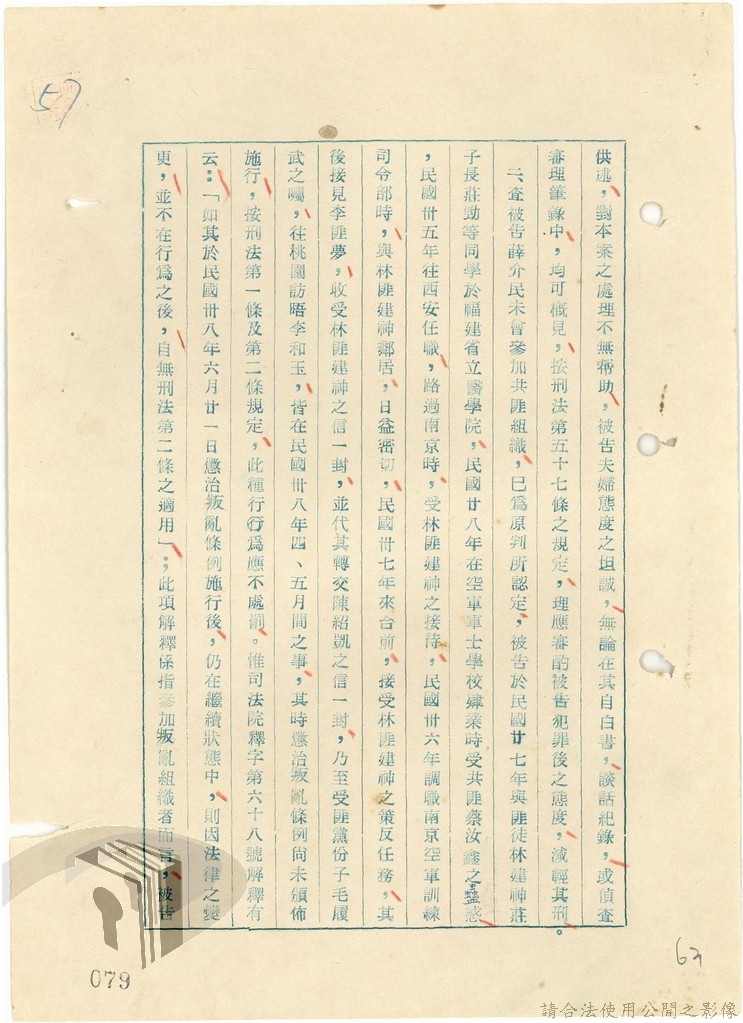 57
供述，對本案之處理不無帮助，被告夫婦態度之坦誠，無論在其自白書，談話紀錄，或偵查
審理筆錄中，均可概見，按刑法第五十七條之規定，理應審酌被告犯罪後之態度，減輕其刑。
二、查被告薛介民未曾參加共匪組織，已爲原判所認定，被告於民國廿七年與匪徒林建神莊
子長莊勁等同學於福建省立醫學院，民國廿八年在空軍軍士學校肄業時受共匪蔡汝鑫之蠱惑
，民國卅五年往西安任職，路過南京時，受林匪建神之接待，民國卅六年調職南京空軍訓練
司令部時，與林匪建神鄰居，日益密切，民國卅七年來台前，接受林匪建神之策反任務，其
後接見李匪夢，收受林匪建神之信一封，並代其轉交陳紹凱之信一封，乃至受匪黨份子毛履
武之囑，往桃園訪晤李和玉，皆在民國卅八年四、五月間之事，其時懲治叛亂條例尙未頒佈
施行，按刑法第一條及第二條規定，此種行行爲應不處罰。惟司法院釋字第六十八號解釋有
云：「如其於民國卅八年六月廿一日懲治叛亂條例施行後，仍在繼續狀態中，則因法律之變
更，並不在行爲之後，自無刑法第二條之適用」；此項解釋係指參加叛亂組織者而言，被告
079
請合法使用公開之影像